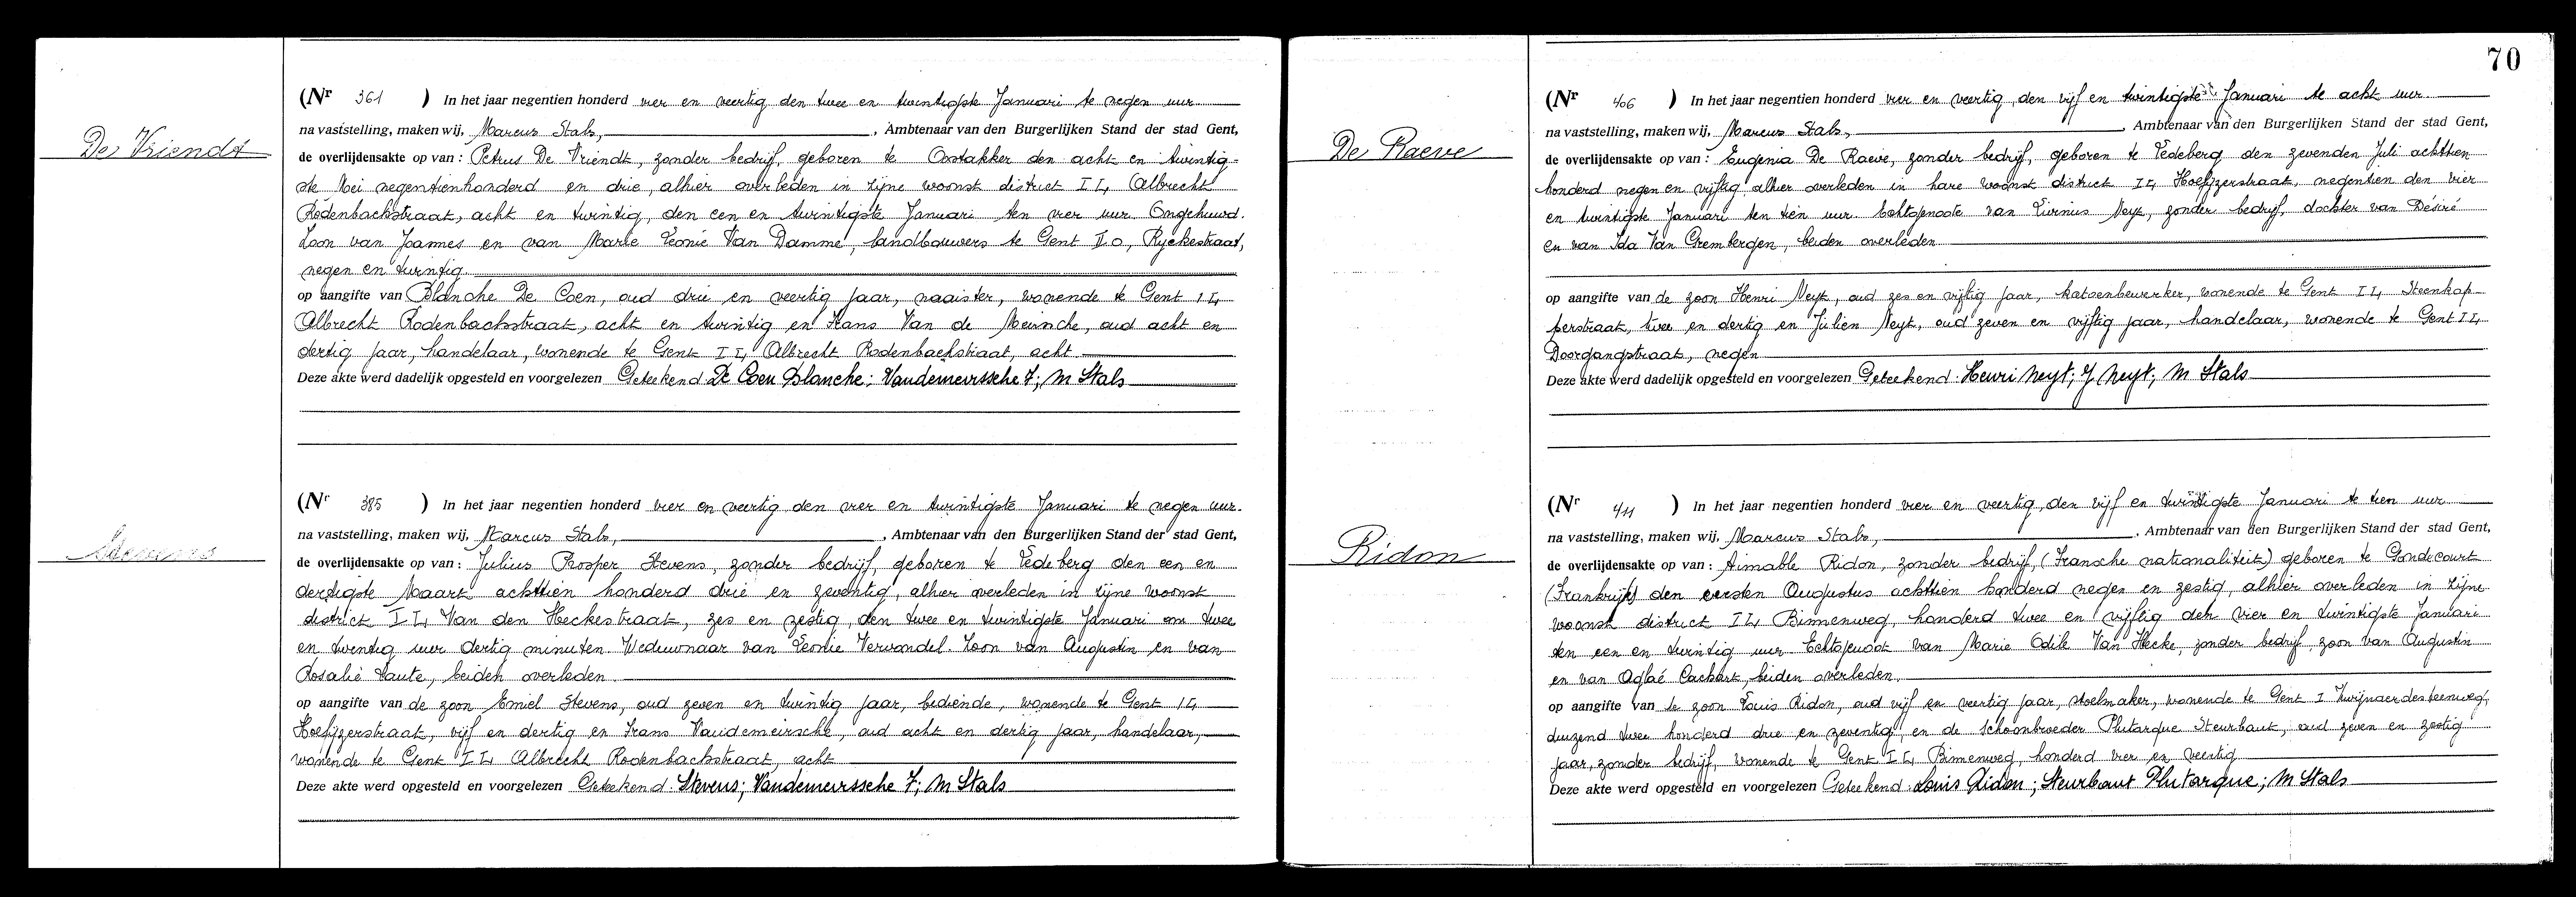 De Vriendt
(Nr 361 ) In het jaar negentien honderd vier en veertig den twee en twintigste Januari te negen uur
na vaststelling, maken wij, Marcus Stals, , Ambtenaar van den Burgerlijken Stand der stad Gent,
de overlijdensakte op van : Petrus De Vriendt, zonder bedrijf, geboren te Oostakker den acht en twintig-
ste Mei negentienhonderd en drie, alhier overleden in zijne woonst district I L, Albrecht
Rodenbachstraat, acht en twintig, den een en twintigste Januari ten vier uur. Ongehuwd.
Zoon van Joannes en van Marie Leonie Van Damme, landbouwers te Gent I o, Ryckestraat,
negen en twintig
op aangifte van Blanche De Coen, oud drie en veertig jaar, naaister, wonende te Gent I L
Albrecht Rodenbachstraat, acht en twintig en Frans Van de Meirsche, oud acht en
dertig jaar, handelaar, wonende te Gent I L, Albrecht Rodenbachstraat, acht
Deze akte werd dadelijk opgesteld en voorgelezen Geteekend De Coen Blanche; Vandemeirssche F; M Stals
Stevens
(Nr 385 ) In het jaar negentien honderd vier en veertig den vier en twintigste Januari te negen uur.
na vaststelling, maken wij, Marcus Stals, , Ambtenaar van den Burgerlijken Stand der stad Gent,
de overlijdensakte op van : Julius Prosper Stevens, zonder bedrijf, geboren te Ledeberg den een en
dertigste Maart achttien honderd drie en zeventig, alhier overleden in zijne woonst
district I L, Van den Heckestraat, zes en zestig, den twee en twintigste Januari om twee
en twintig uur dertig minuten. Weduwnaar van Leonie Verwondel. Zoon van Augustin en van
Rosalie Laute, beiden overleden.
op aangifte van de zoon Emiel Stevens, oud zeven en twintig jaar, bediende, wonende te Gent I L
Hoefijzerstraat, vijf en dertig en Frans Vandemeirssche, oud acht en dertig jaar, handelaar,
wonende te Gent I L, Albrecht Rodenbachstraat, acht
Deze akte werd opgesteld en voorgelezen Geteekend. Stevens; Vandemeirssche F; M Stals
70
De Raeve
(Nr 406 ) In het jaar negentien honderd vier en veertig, den vijf en twintigste Januari te acht uur.
na vaststelling, maken wij, Marcus Stals, , Ambtenaar van den Burgerlijken Stand der stad Gent,
de overlijdensakte op van : Eugenia De Raeve, zonder bedrijf, geboren te Ledeberg den zevenden Juli achttien
honderd negen en vijftig alhier overleden in hare woonst district I L, Hoefijzerstraat, negentien den vier
en twintigste Januari ten tien uur. Echtgenoote van Livinus Neyt, zonder bedrijf, dochter van Désiré
en van Ida Van Grembergen, beiden overleden
op aangifte van de zoon Henri Neyt, oud zes en vijftig jaar, katoenbewerker, wonende te Gent I L, Steenkap-
perstraat, twee en dertig en Julien Neyt, oud zeven en vijftig jaar, handelaar, wonende te Gent I L
Doorgangstraat, negen
Deze akte werd dadelijk opgesteld en voorgelezen Geteekend: Henri Neyt; J Neyt; M Stals
Ridon
(Nr 411 ) In het jaar negentien honderd vier en veertig, den vijf en twintigste Januari te tien uur
na vaststelling, maken wij, Marcus Stals, , Ambtenaar van den Burgerlijken Stand der stad Gent,
de overlijdensakte op van : Aimable Ridon, zonder bedrijf, (Fransche nationaliteit) geboren te Gondecourt
(Frankrijk) den eersten Augustus achttien honderd negen en zestig, alhier overleden in zijne
woonst district I L, Binnenweg, honderd twee en vijftig den vier en twintigste Januari
ten een en twintig uur Echtgenoot van Marie Odile Van Hecke, zonder bedrijf, zoon van Augustin
en van Aglaé Cachart, beiden overleden.
op aangifte van de zoon Louis Ridon, oud vijf en veertig jaar, stoelmaker, wonende te Gent I Zwijnaerdesteenweg,
duizend twee honderd drie en zeventig en de schoonbroeder Plutarque Steurbaut, oud zeven en zestig
jaar, zonder bedrijf, wonende te Gent I L, Binnenweg, honderd vier en veertig
Deze akte werd opgesteld en voorgelezen Geteekend: Louis Ridon; Steurbaut Plutarque; M Stals